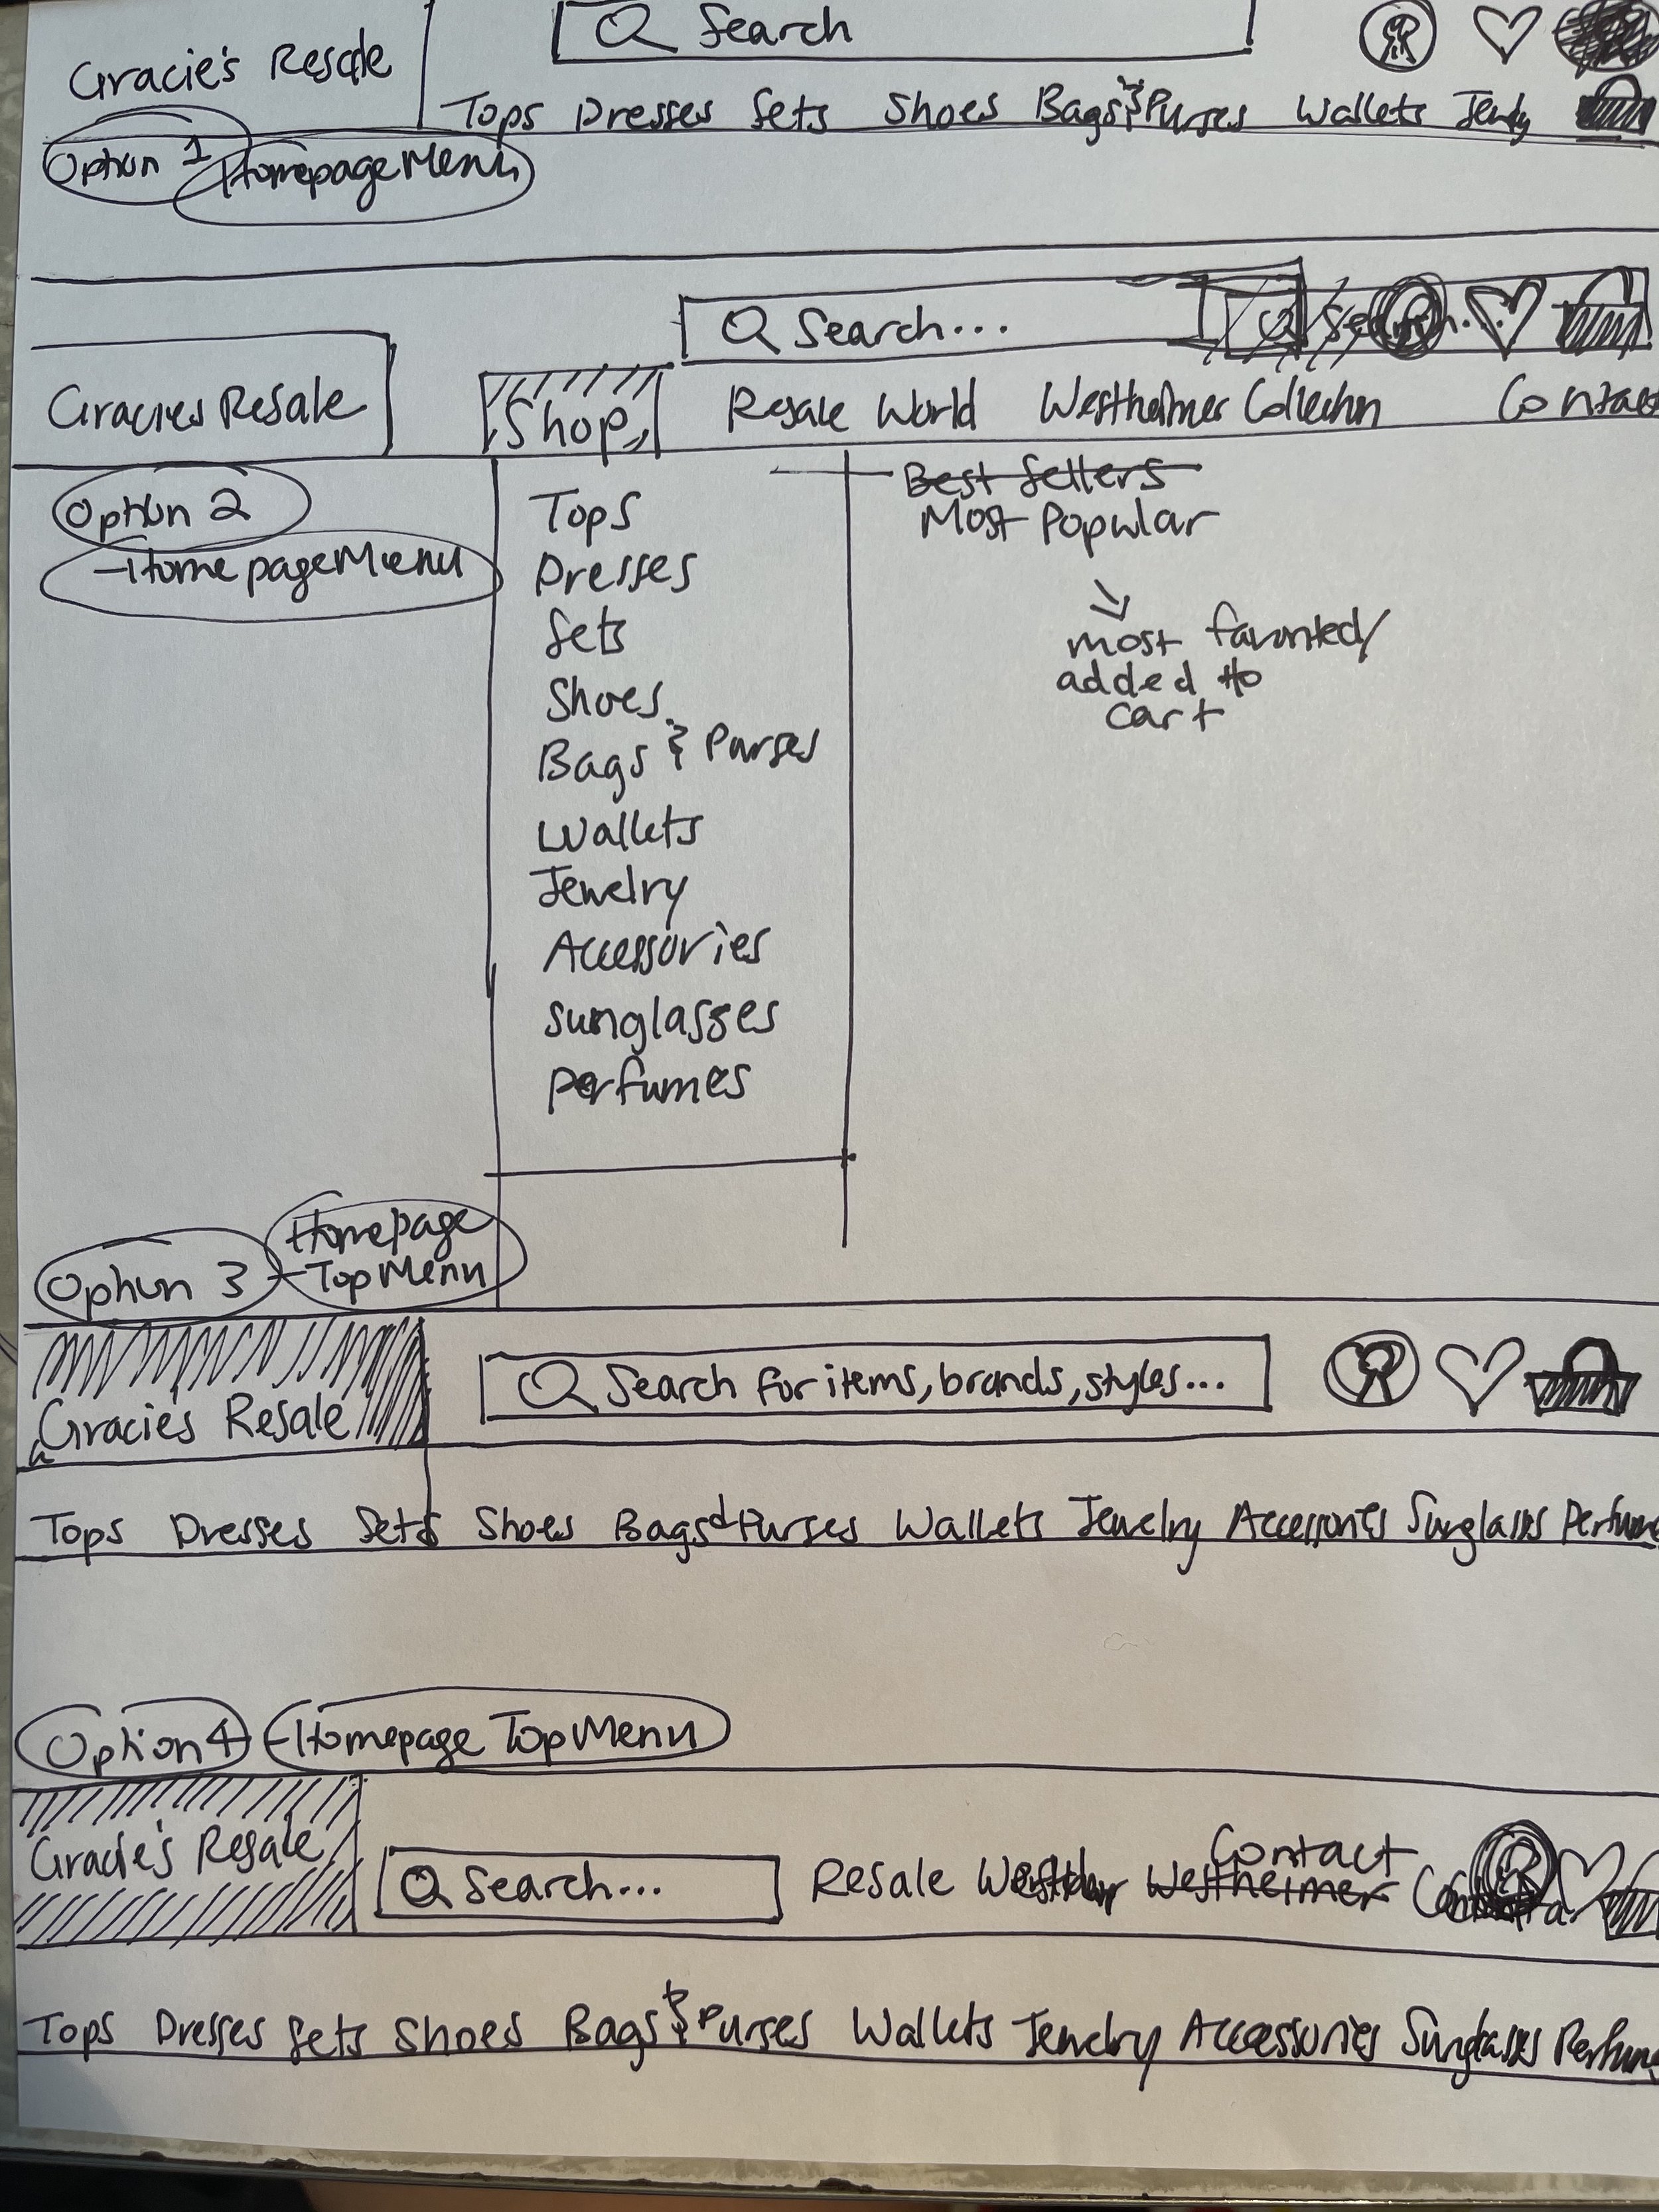 Gracie's Resale
Search
Tops Dresses Sets Shoes Bags & Purses Wallets
Option 1 Homepage Menu
Search...
Gracies Resale
Shop
Resale World Westheimer Collection Contact
Option 2
Homepage Menu
Tops
Dresses
Sets
Shoes
Bags & Purses
Wallets
Jewelry
Accessories
Sunglasses
Perfumes
Best Sellers
Most Popular
most favorited/
added to
cart
Option 3
Homepage
Top Menu
Gracie's Resale
Search for items, brands, styles...
Tops Dresses Sets Shoes Bags & Purses Wallets Jewelry Accessories Sunglasses Perfume
Option 4 Homepage Top Menu
Gracie's Resale
Search...
Resale
Contact
Westheimer
Tops Dresses Sets Shoes Bags & Purses Wallets Jewelry Accessories Sunglasses Perfum